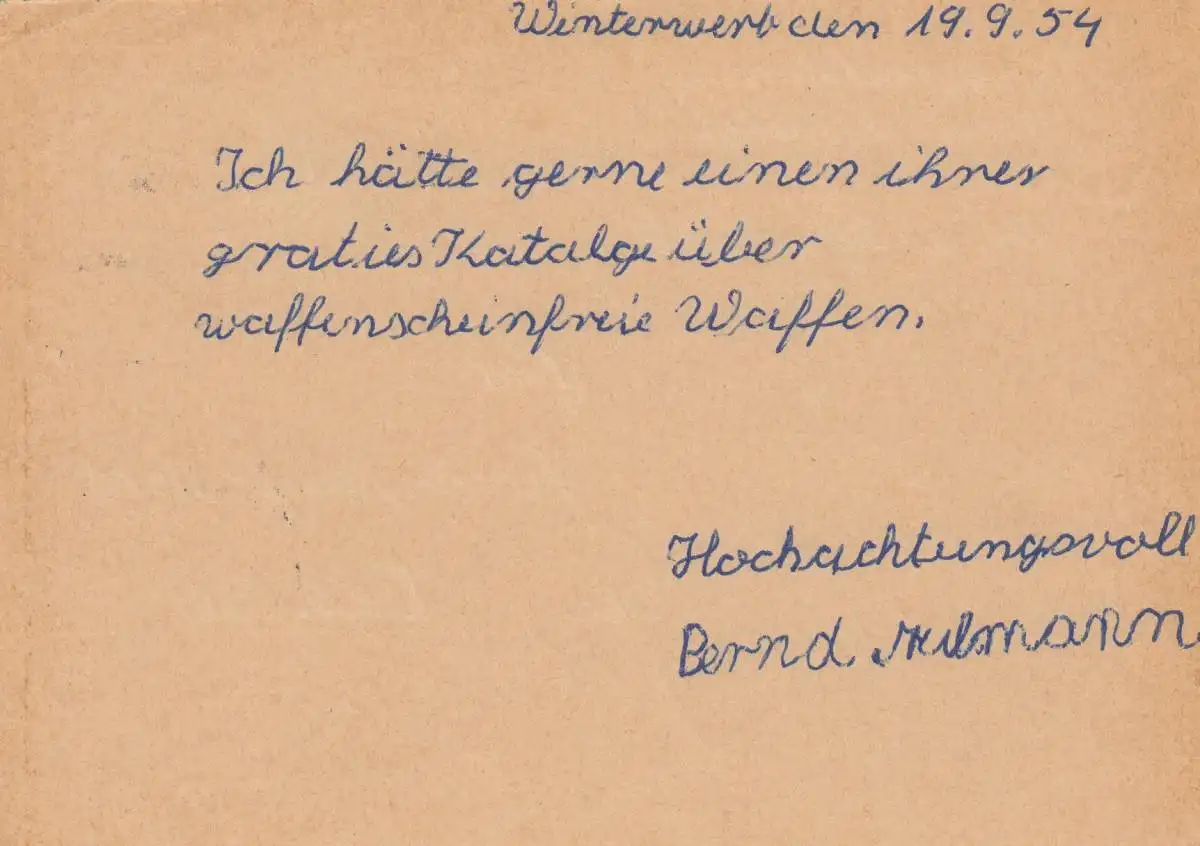 Winterwerb den 19.9.54
Ich hätte gerne einen ihrer
graties Katalge über
waffenscheinfreie Waffen.
Hochachtungsvoll
Bernd